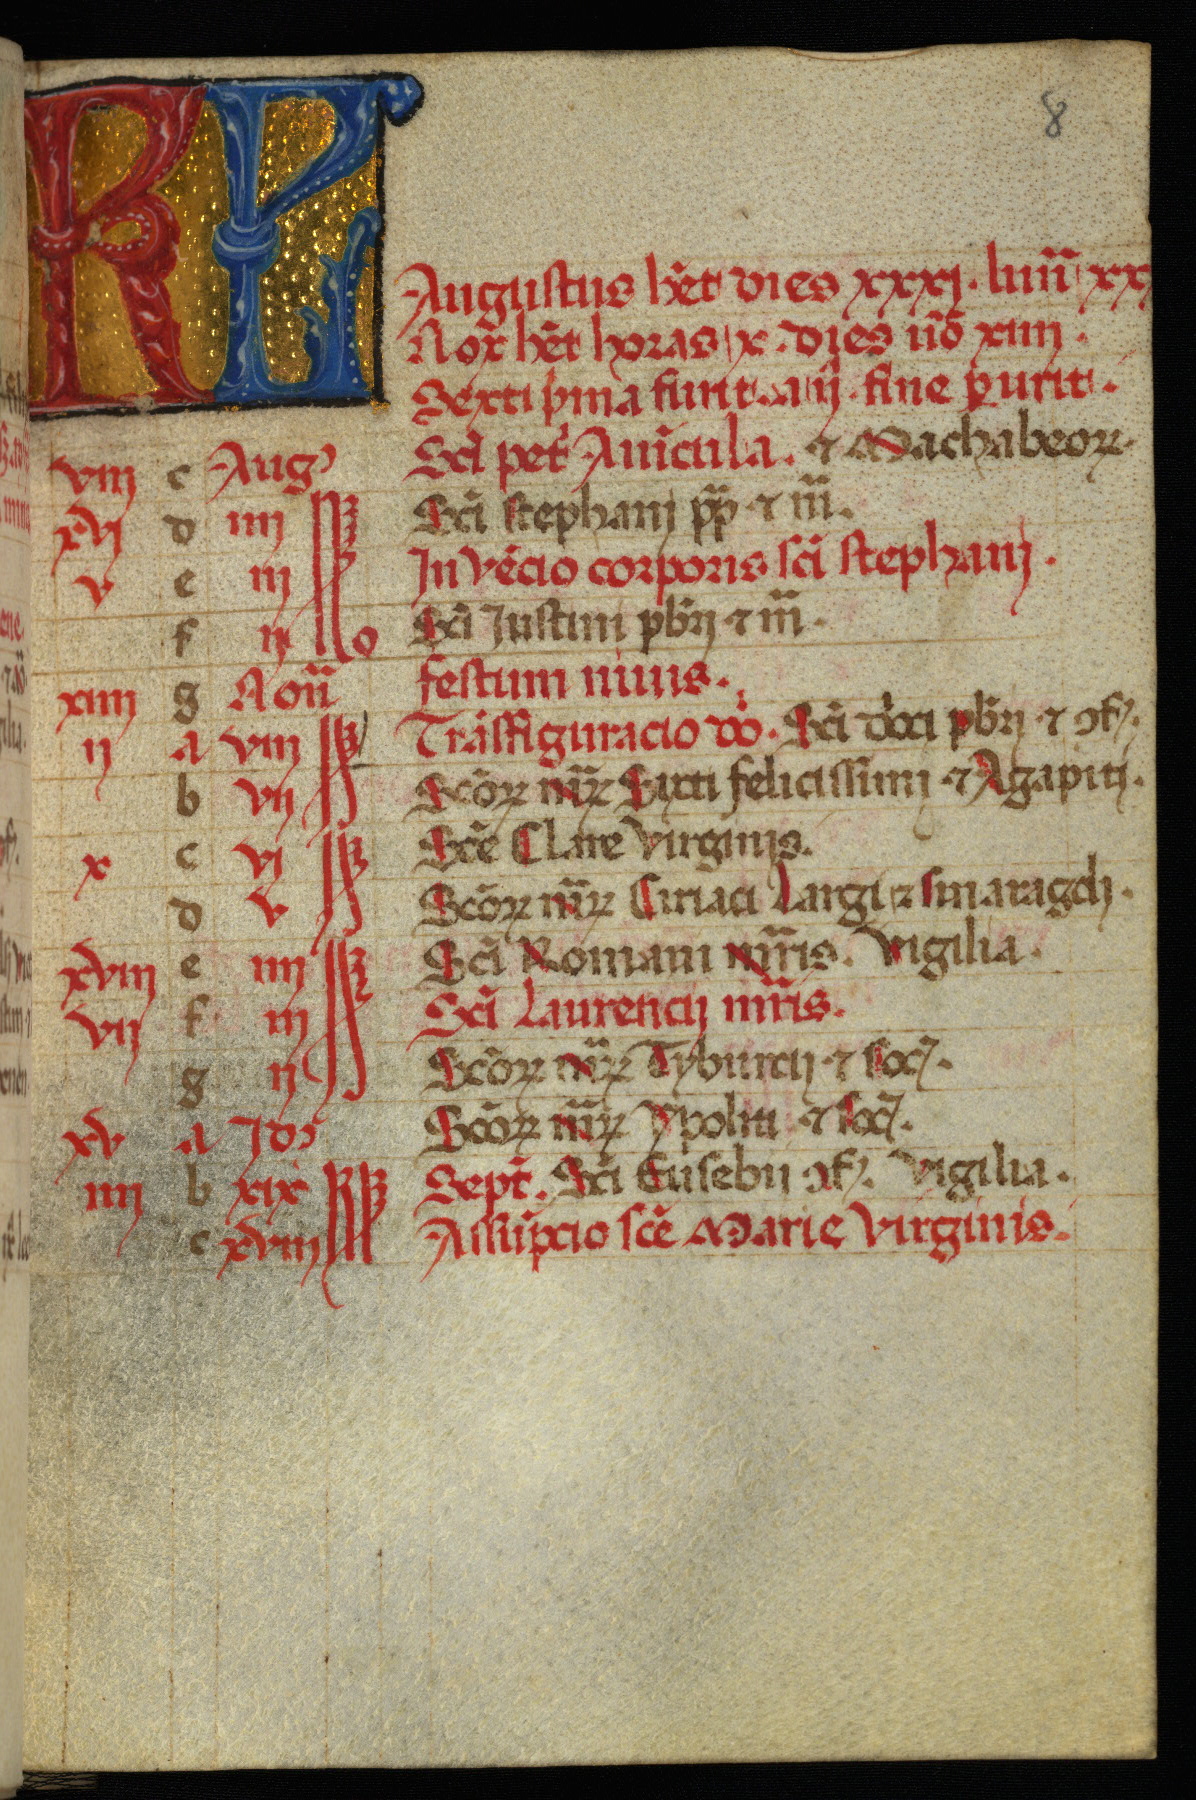 8
KL
Augustus hēt dies xxxj. luñ xx
Nox hēt horas x. dies ūō xiiii.
Sexti pma fuit fine purit.
viii c Aug Sci pet Auīcula. ⁊ Machabeoꝝ.
xvi d iiii Sci stephani pp ⁊ m̄.
v e iii Jnvēcio corporis sci stephani.
f ii Sci Justini pbri ⁊ m̄.
xiiii g Noñ festum niuis.
ii a viii Trāsfiguracio dō. Sci pbri ⁊ ꝯf.
b vii Scōꝝ mr̄ꝝ Sixti felicissimi ⁊ Agapiti.
x c vi Scē Clare virginis.
d v Scōꝝ mr̄ꝝ Ciriaci Largi ⁊ smaragdi.
xviii e iiii Sci Romani mr̄is. Vigilia.
vii f iii Sci Laurencij mr̄is.
g ii Scōꝝ mr̄ꝝ Tyburcij ⁊ soc.
xv a Jdꝰ Scōꝝ mr̄ꝝ Ypoliti ⁊ soc.
iiii b xix Sept. Sci Eusebii ꝯf. Vigilia.
c xviii Assūpcio scē Marie Virginis.